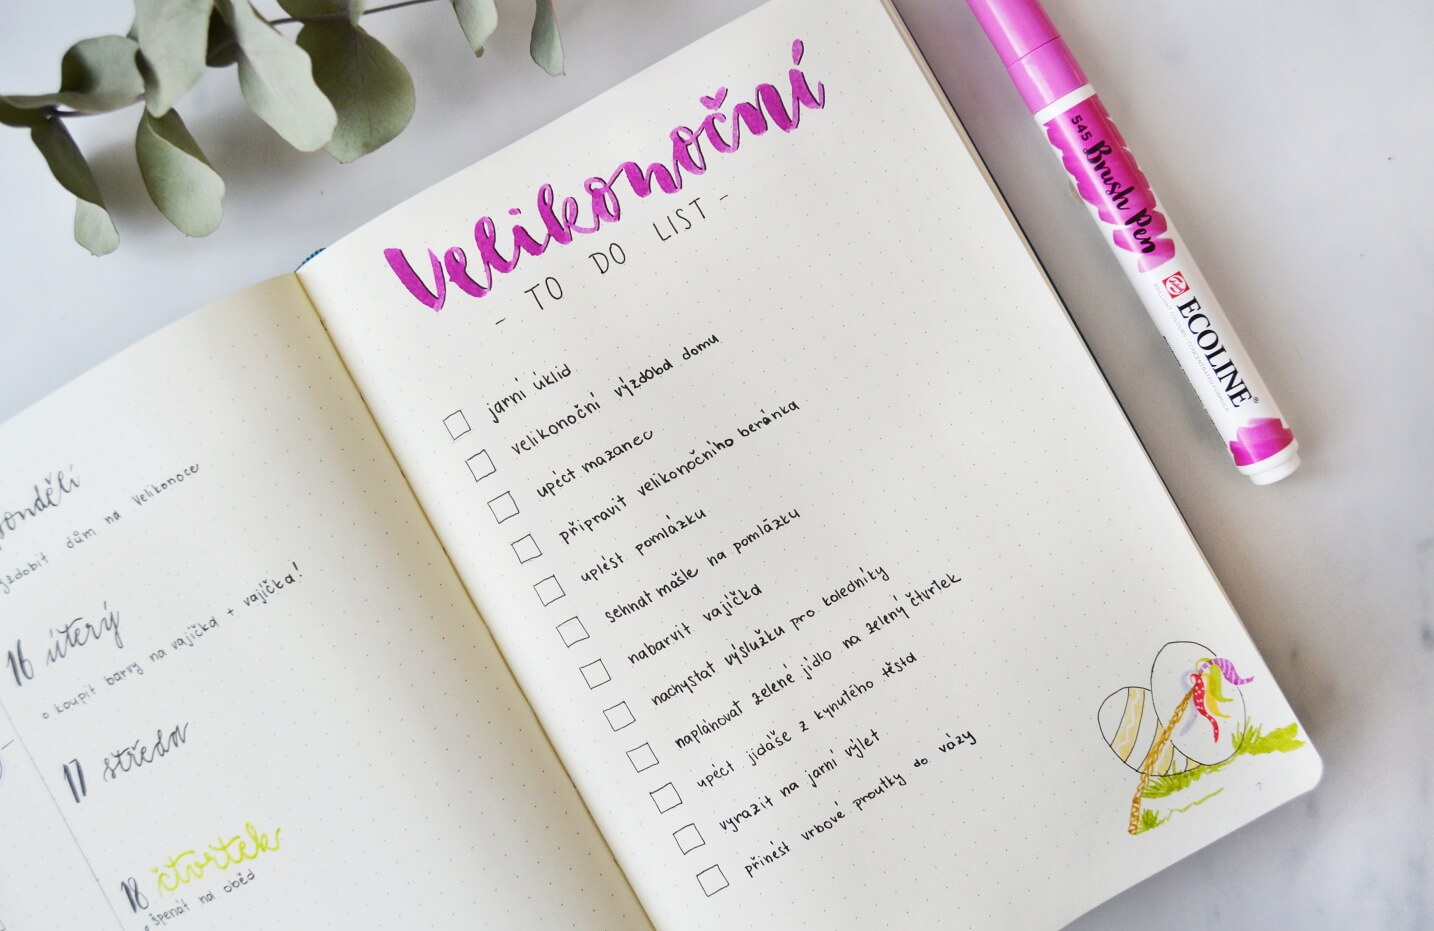 ondělí
ozdobit dům na Velikonoce
16 úterý
o koupit barvy na vajíčka + vajíčka!
17 středa
18 čtvrtek
špenát na oběd
Velikonoční
- TO DO LIST -
jarní úklid
velikonoční výzdoba domu
upéct mazanec
připravit velikonočního beránka
uplést pomlázku
sehnat mašle na pomlázky
nabarvit vajíčka
nachystat výslužku pro koledníky
naplánovat zelené jídlo na zelený čtvrtek
upéct jidáše z kynutého těsta
vyrazit na jarní výlet
přinést vrbové proutky do vázy
545 Brush Pen
ECOLINE®